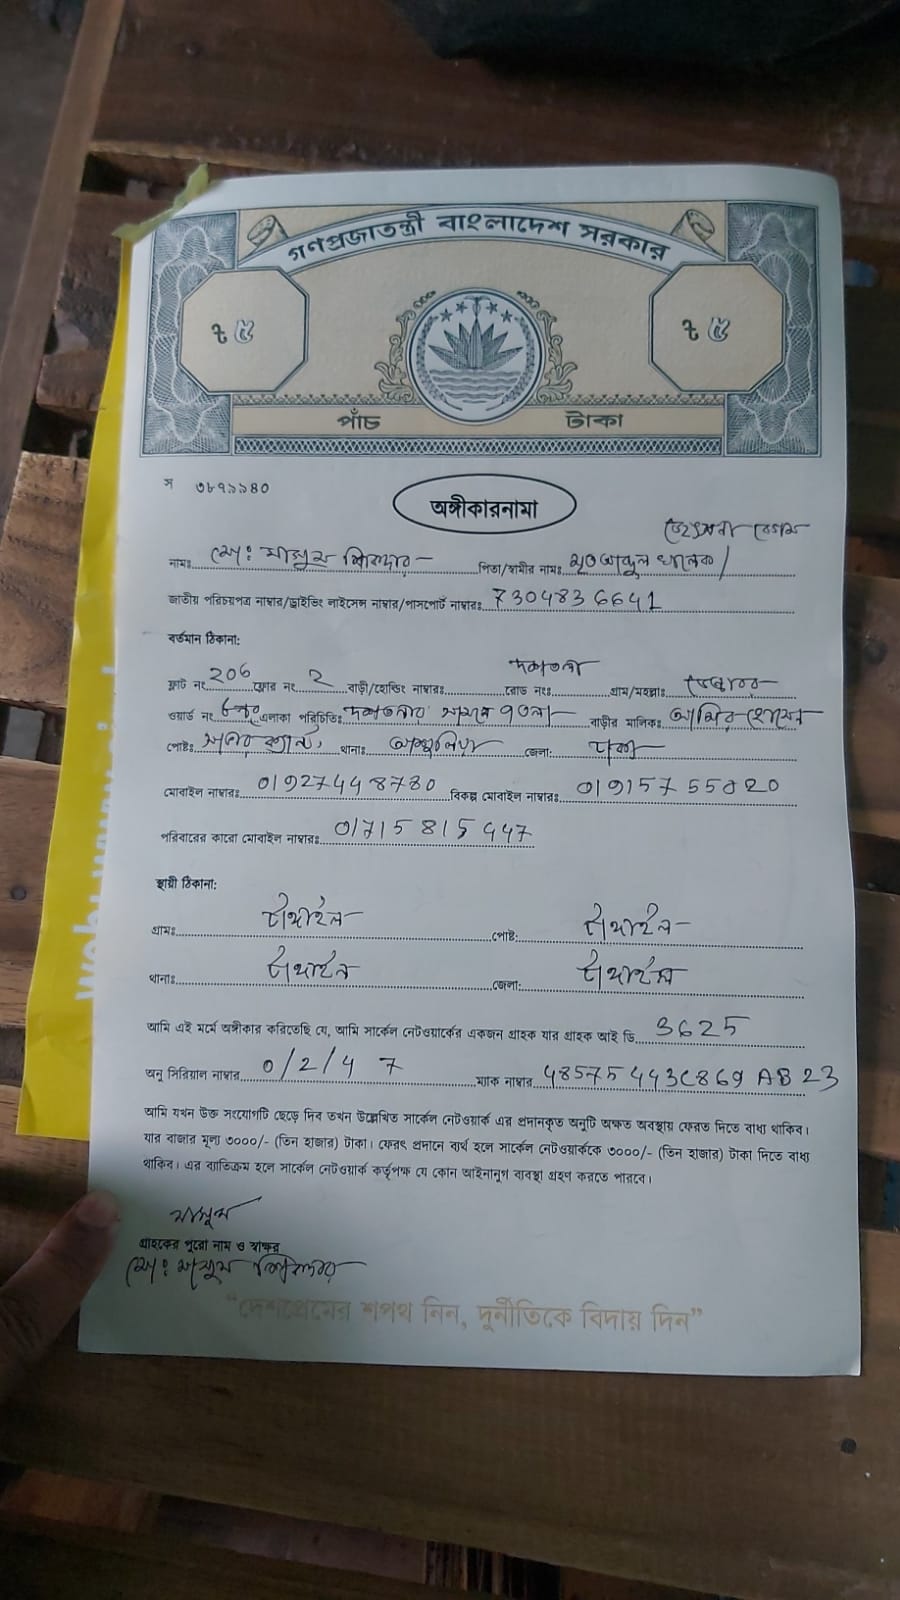 গণপ্রজাতন্ত্রী বাংলাদেশ সরকার
৳ ৫
৳ ৫
পাঁচ টাকা
স ৩৮৭৯৯৪০
অঙ্গীকারনামা
বেগম
নামঃ মোঃ মাসুম শিকদার পিতা/স্বামীর নামঃ মৃত আব্দুল খালেক/
জাতীয় পরিচয়পত্র নাম্বার/ড্রাইভিং লাইসেন্স নাম্বার/পাসপোর্ট নাম্বারঃ 7304836641
বর্তমান ঠিকানা:
ফ্লাট নং 206 ফ্লোর নং 2 বাড়ী/হোল্ডিং নাম্বারঃ রোড নংঃ দশতলা গ্রাম/মহল্লাঃ
ওয়ার্ড নং এলাকা পরিচিতিঃ দশতলার সামনে ৭তলা বাড়ীর মালিকঃ আমির হোসেন
পোষ্টঃ থানাঃ আশুলিয়া জেলা: ঢাকা
মোবাইল নাম্বারঃ 01927448780 বিকল্প মোবাইল নাম্বারঃ 01915755020
পরিবারের কারো মোবাইল নাম্বারঃ 01715815447
স্থায়ী ঠিকানা:
গ্রামঃ টাংগাইল পোষ্ট: টাংগাইল
থানাঃ টাংগাইল জেলা: টাংগাইল
আমি এই মর্মে অঙ্গীকার করিতেছি যে, আমি সার্কেল নেটওয়ার্কের একজন গ্রাহক যার গ্রাহক আই ডি 3625
অনু সিরিয়াল নাম্বার 0/2/4 7 ম্যাক নাম্বার 48575443C869AB23
আমি যখন উক্ত সংযোগটি ছেড়ে দিব তখন উল্লেখিত সার্কেল নেটওয়ার্ক এর প্রদানকৃত অনুটি অক্ষত অবস্থায় ফেরত দিতে বাধ্য থাকিব।
যার বাজার মূল্য ৩০০০/- (তিন হাজার) টাকা। ফেরৎ প্রদানে ব্যর্থ হলে সার্কেল নেটওয়ার্ককে ৩০০০/- (তিন হাজার) টাকা দিতে বাধ্য
থাকিব। এর ব্যতিক্রম হলে সার্কেল নেটওয়ার্ক কর্তৃপক্ষ যে কোন আইনানুগ ব্যবস্থা গ্রহণ করতে পারবে।
মাসুম
গ্রাহকের পুরো নাম ও স্বাক্ষর
মোঃ মাসুম শিকদার
“দেশপ্রেমের শপথ নিন, দুর্নীতিকে বিদায় দিন”